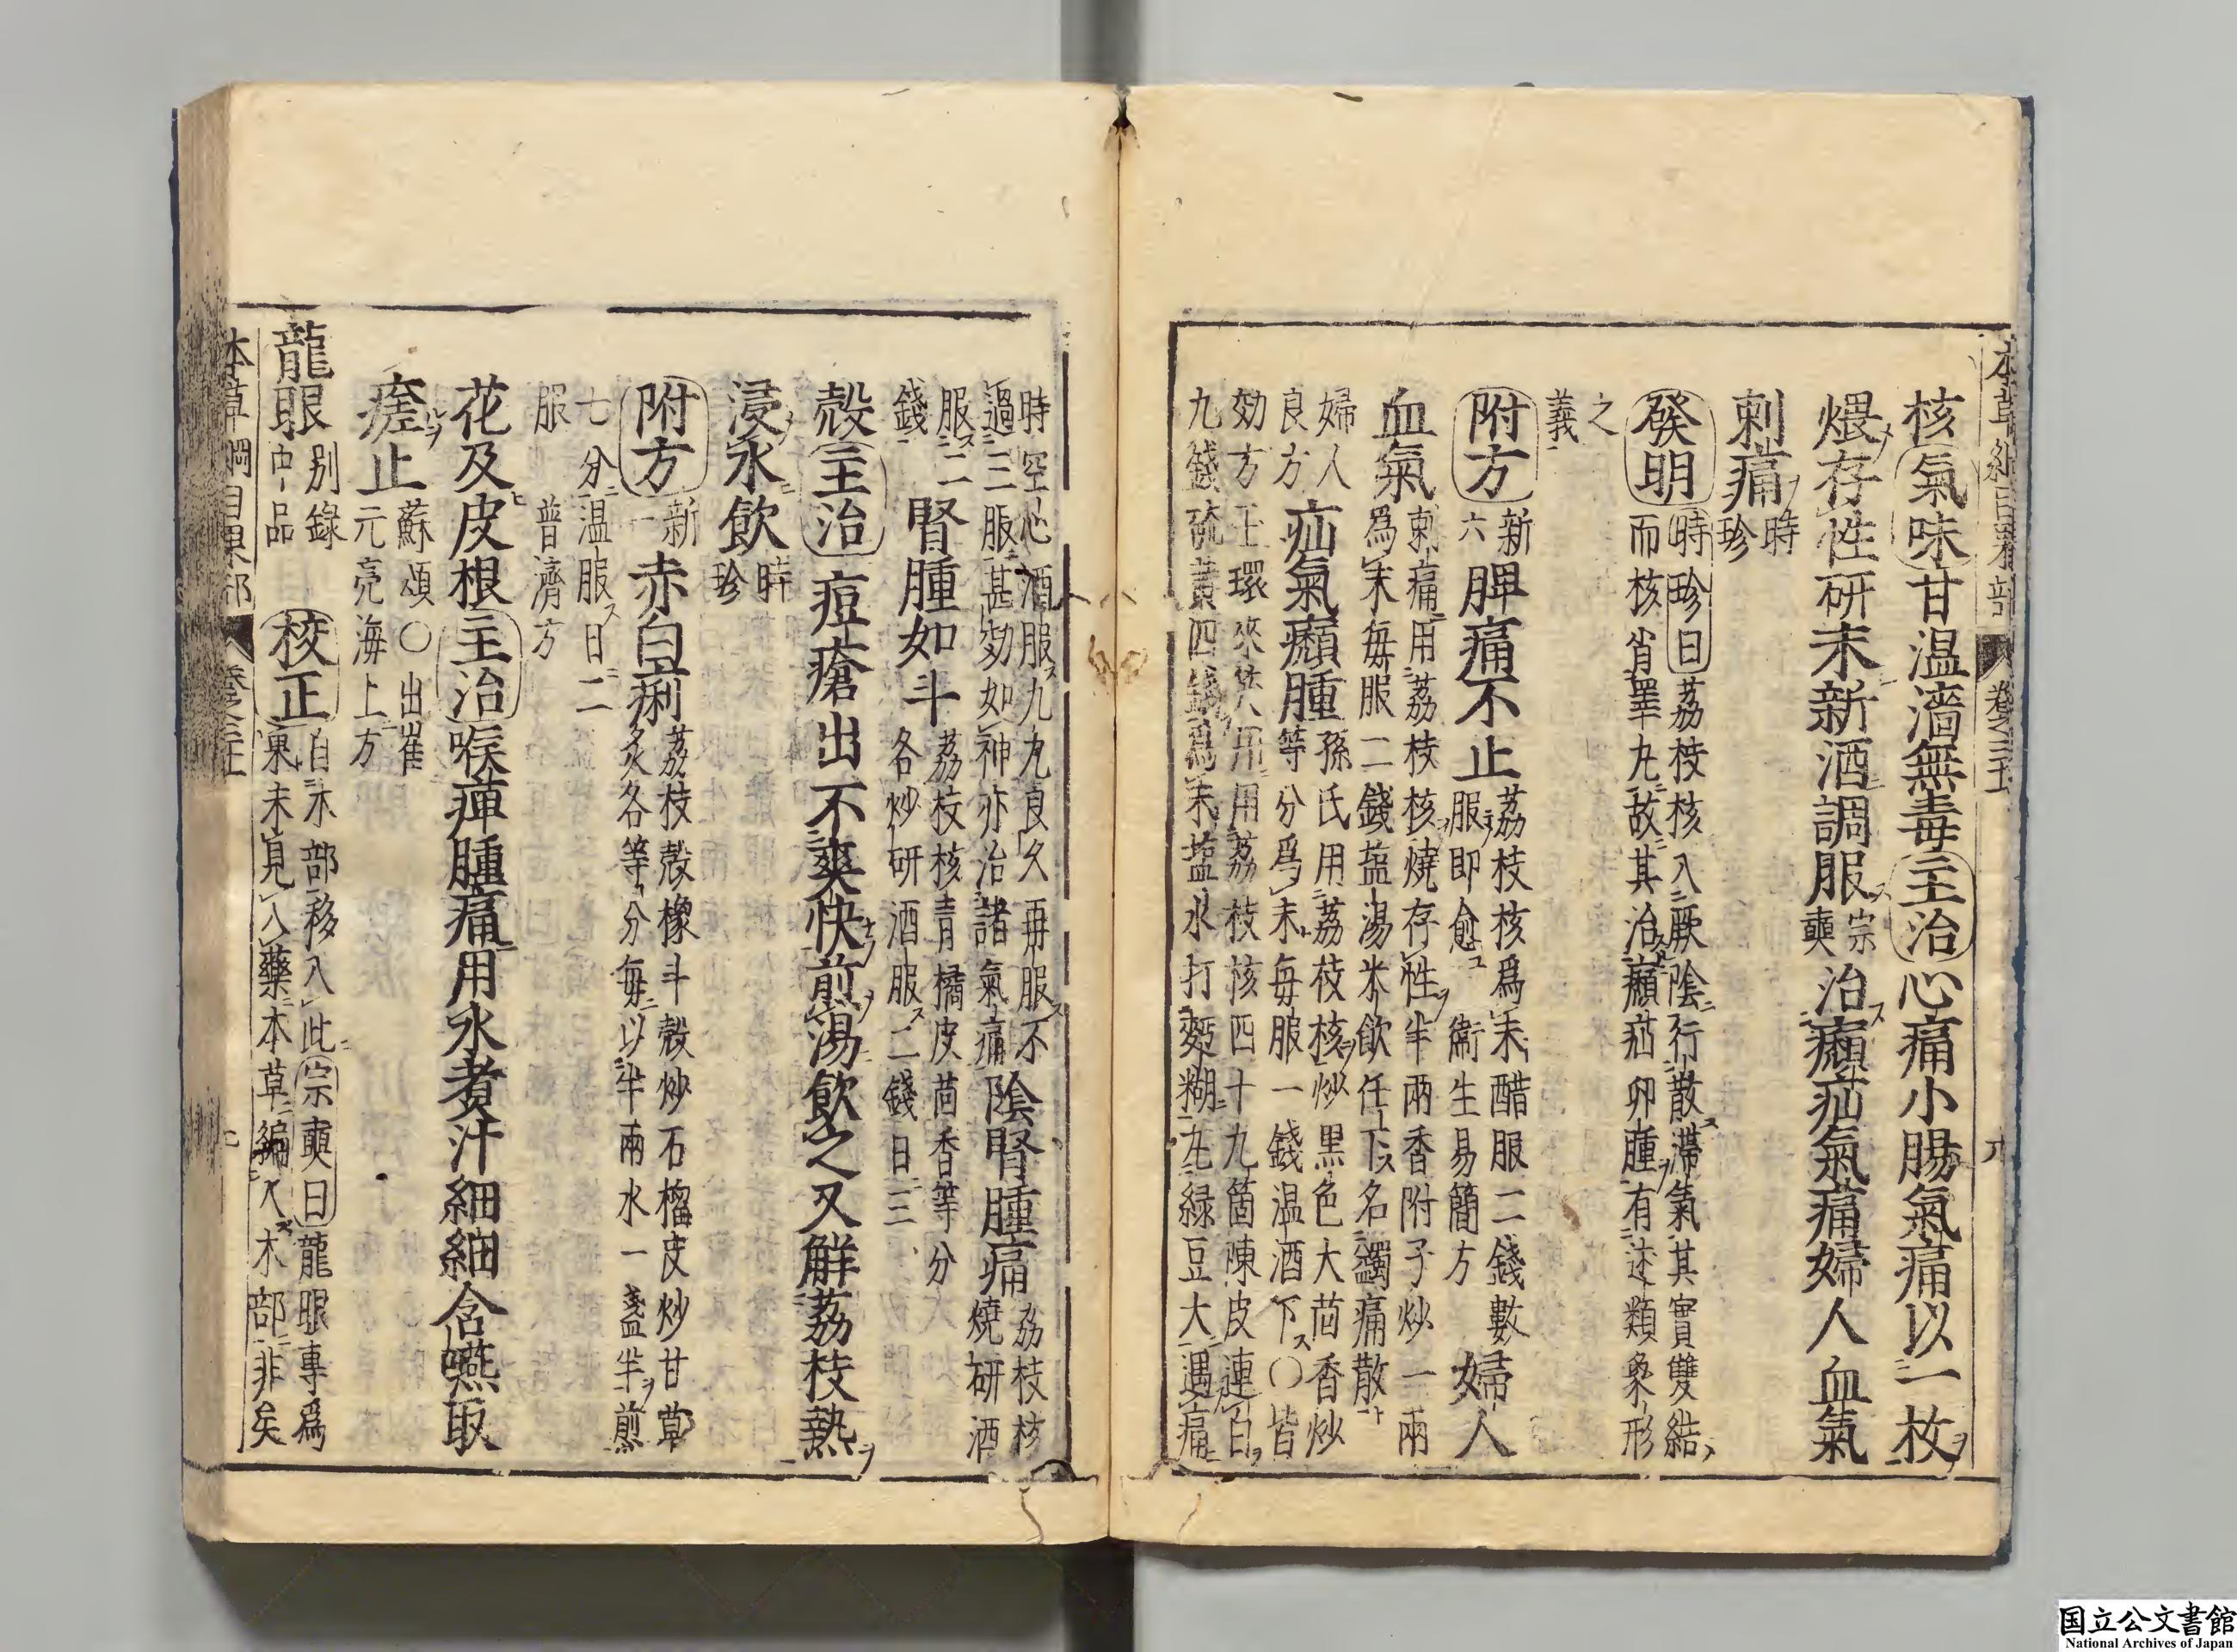 核氣味甘温濇無毒主治心痛小腸氣痛以一枚
煨存性研末新酒調服宗奭治㿗疝氣痛婦人血氣
刺痛時珍
發明時珍曰荔枝核入厥陰行散滯氣其實雙結
而核肖睪丸故其治㿗疝卵腫有述類象形
之
義
附方新六脾痛不止荔枝核爲末醋服二錢數
服即愈衞生易簡方婦人
血氣刺痛用荔枝核燒存性半兩香附子炒一兩
爲末每服二錢鹽湯米飲任下名蠲痛散
婦人良方疝氣㿗腫孫氏用荔枝核炒黑色大茴香炒
等分爲末每服一錢温酒下〇皆
効方玉環來笑丹用荔枝核四十九箇陳皮連白
九錢硫黄四錢爲末塩水打麪糊丸緑豆大遇痛
時空心酒服九丸良久再服不
過三服甚効如神亦治諸氣痛陰腎腫痛荔枝核
燒研酒
服二
錢腎腫如斗荔枝核青橘皮茴香等分
各炒研酒服二錢日三
殻主治痘瘡出不爽快煎湯飲之又解荔枝熱
浸水飲時珍
附方新一赤白痢荔枝殻橡斗殻炒石榴皮炒甘草
炙各等分每以半兩水一盞半煎
七分温服日二
服普濟方
花及皮根主治喉痺腫痛用水煮汁細細含嚥取
瘥止蘇頌〇出崔
元亮海上方
龍眼别錄中品校正自木部移入此宗奭曰龍眼專爲
果未見入藥本草編入木部非矣
本草綱目果部